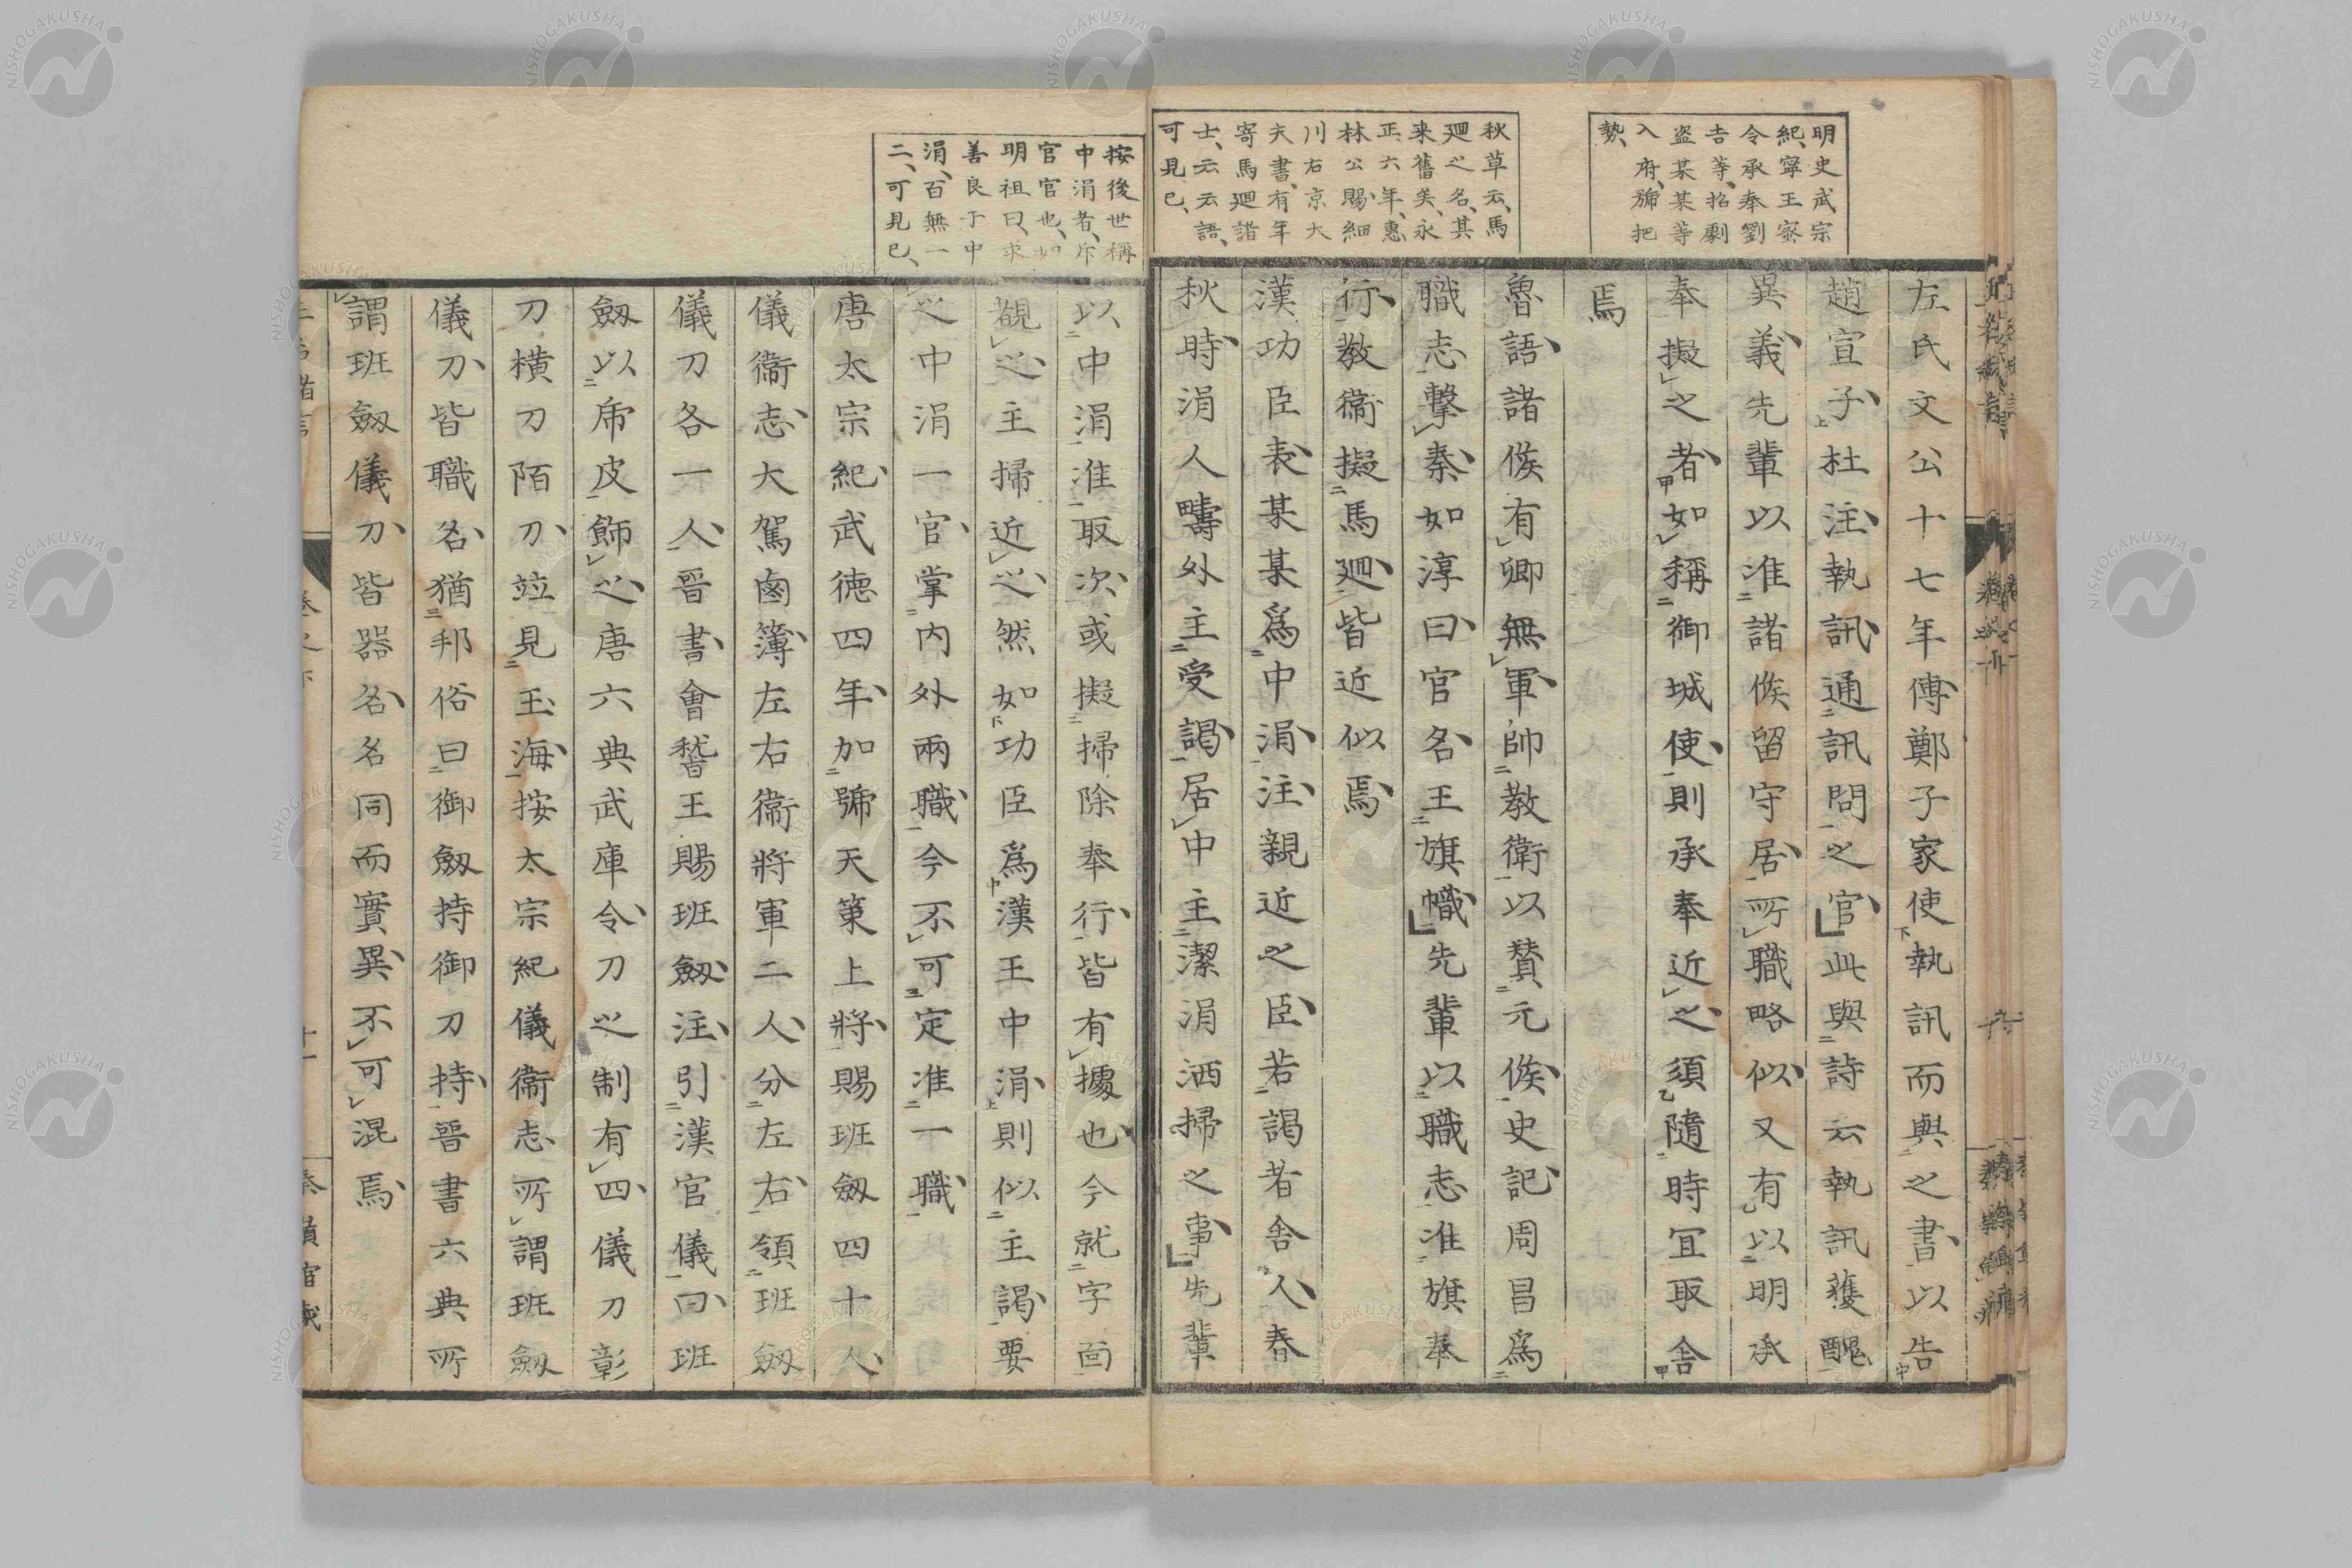 明史武宗
紀、寧王宸
令承奉劉
吉等、招劇
盗某某等
入府、號把
勢、
秋草云、馬
廻之名、其
来舊矣、永
正六年、惠
林公賜細
川右京大
夫書、有年
寄馬廻諸
士、云云語、
可見已、
左氏文公十七年傳鄭子家使執訊而與之書以告
趙宣子杜注執訊通訊問之官此與詩云執訊獲醜
異義先輩以准諸侯留守居所職略似又有以明承
奉擬之者如稱御城使則承奉近之須隨時宜取舎
焉
魯語諸侯有卿無軍帥教衛以賛元侯史記周昌爲
職志擊秦如淳曰官名主旗幟先輩以職志准旗奉
行教衞擬馬廻皆近似焉
漢功臣表某某爲中涓注親近之臣若謁者舎人春
秋時涓人疇外主受謁居中主潔涓洒掃之事先輩
按後世稱
中涓者、斥
宦官也、如
明祖曰、求
善良于中
涓、百無一
二、可見已、
以中涓准取次或擬掃除奉行皆有據也今就字面
觀之主掃近之然如功臣爲漢王中涓則似主謁要
之中涓一官掌内外兩職今不可定准一職
唐太宗紀武德四年加號天策上將賜班劔四十人
儀衞志大駕鹵簿左右衞將軍二人分左右領班劔
儀刀各一人晉書會稽王賜班劔注引漢官儀曰班
劔以虎皮飾之唐六典武庫令刀之制有四儀刀彰
刀横刀陌刀竝見玉海按太宗紀儀衞志所謂班劔
儀刀皆職名猶邦俗曰御劔持御刀持晉書六典所
謂班劔儀刀皆器名名同而實異不可混焉